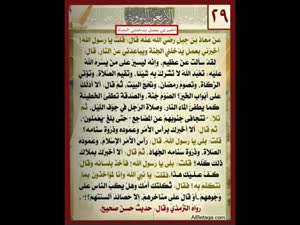 الأربعون النووية
٢٩
أخبرني بعمل يدخلني الجنة
عن معاذ بن جبل رضي الله عنه قال: قلت يا رسول الله!
أخبرني بعمل يدخلني الجنة ويباعدني عن النار، قال:
لقد سألت عن عظيم، وإنه ليسير على من يسره الله
عليه: تعبد الله لا تشرك به شيئا، وتقيم الصلاة، وتؤتي
الزكاة، وتصوم رمضان، وتحج البيت، ثم قال: ألا أدلك
على أبواب الخير؟ الصوم جنة، والصدقة تطفئ الخطيئة
كما يطفئ الماء النار، وصلاة الرجل في جوف الليل، ثم
تلا: تتجافى جنوبهم عن المضاجع حتى بلغ يعملون،
ثم قال: ألا أخبرك برأس الأمر وعموده وذروة سنامه؟
قلت: بلى يا رسول الله، قال: رأس الأمر الإسلام، وعموده
الصلاة، وذروة سنامه الجهاد، ثم قال: ألا أخبرك بملاك
ذلك كله؟ قلت: بلى يا رسول الله! فأخذ بلسانه وقال:
كف عليك هذا، قلت: يا نبي الله وإنا لمؤاخذون بما
نتكلم به؟ فقال: ثكلتك أمك وهل يكب الناس على
وجوههم، أو قال على مناخرهم، إلا حصائد ألسنتهم؟!
رواه الترمذي وقال: حديث حسن صحيح.
AlBetaqa.com